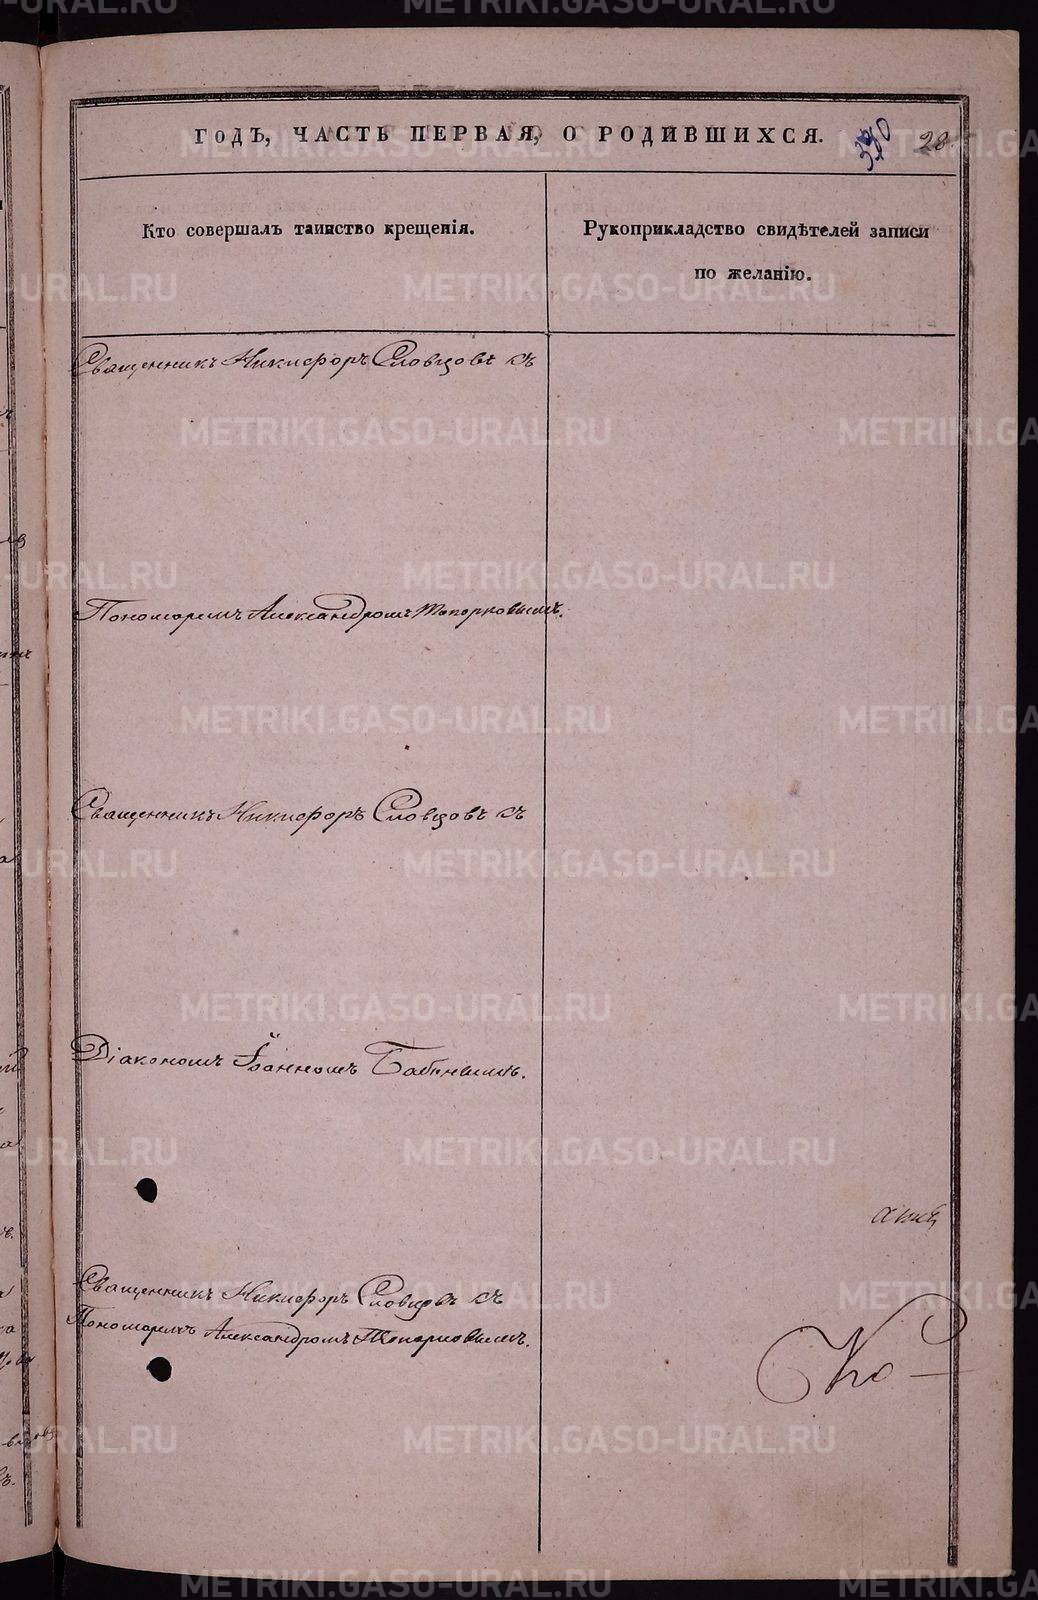 ГОДЪ, ЧАСТЬ ПЕРВАЯ, О РОДИВШИХСЯ.
28
Кто совершалъ таинство крещенія.
Рукоприкладство свидѣтелей записи
по желанію.
Священникъ Никифоръ Словцовъ съ
Пономаремъ Александромъ Топорковымъ.
Священникъ Никифоръ Словцовъ съ
Діакономъ Іоанномъ
Священникъ Никифоръ Словцовъ съ
Пономаремъ Александромъ Топорковымъ.
METRIKI.GASO-URAL.RU